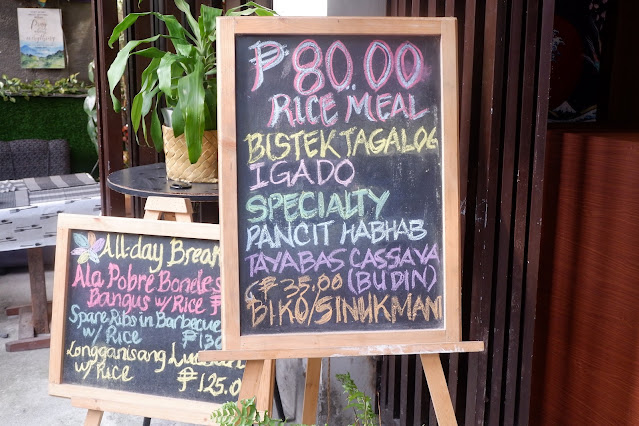 ₱80.00
RICE MEAL
BISTEK TAGALOG
IGADO
SPECIALTY
PANCIT HABHAB
TAYABAS CASSAVA
₱35.00 (BUDIN)
BIKO/SINUKMANI
All-day Break
Ala Pobre Boneles
Bangus w/ Rice ₱
Spare Ribs in Barbecue
w/ Rice ₱130
Longganisang
w/ Rice ₱125.00